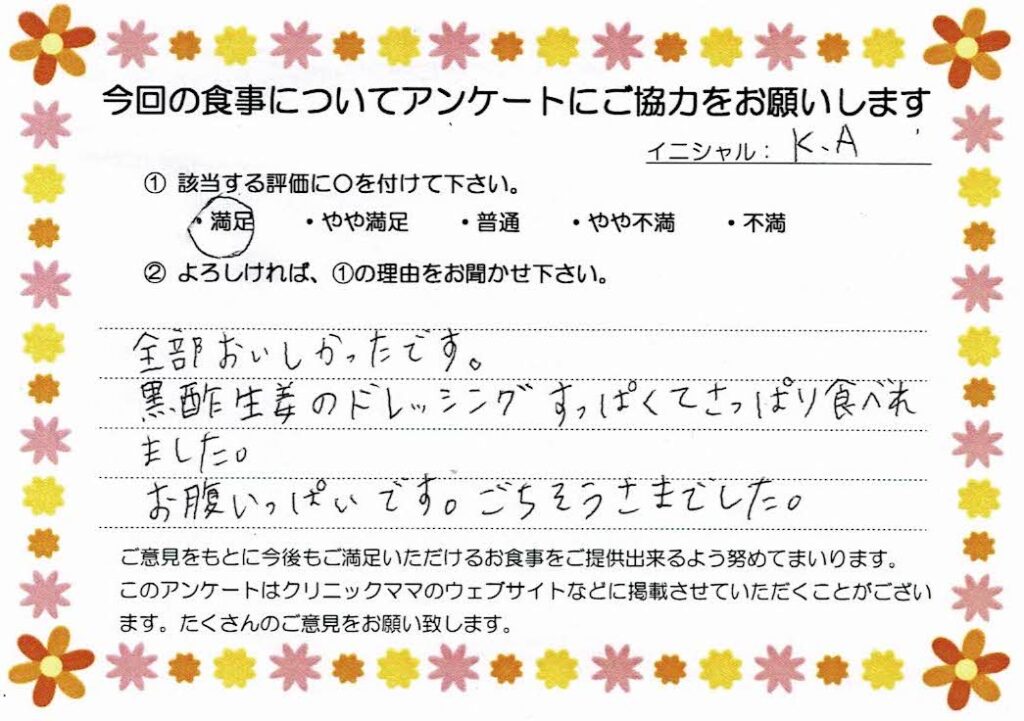 今回の食事についてアンケートにご協力をお願いします
イニシャル： K.A
① 該当する評価に〇を付けて下さい。
・満足 ・やや満足 ・普通 ・やや不満 ・不満
② よろしければ、①の理由をお聞かせ下さい。
全部おいしかったです。
黒酢生姜のドレッシングすっぱくてさっぱり食べれ
ました。
お腹いっぱいです。ごちそうさまでした。
ご意見をもとに今後もご満足いただけるお食事をご提供出来るよう努めてまいります。
このアンケートはクリニックママのウェブサイトなどに掲載させていただくことがござい
ます。たくさんのご意見をお願い致します。